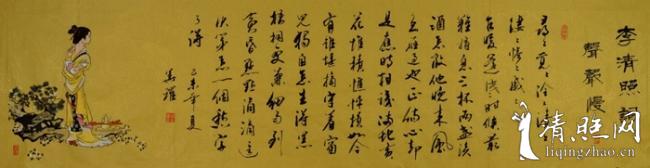 李清照詞
聲聲慢
尋々覓々冷々清々
淒々慘々戚々
乍暖還寒時候最
難將息三杯兩盞淡
酒怎敵他晚來風
急雁過也正傷心卻
是舊時相識滿地黃
花堆積憔悴損如今
有誰堪摘守著窗
兒獨自怎生得黑
梧桐更兼細雨到
黃昏點點滴滴這
次第怎一個愁字
了得
乙未年夏
清旺网
liqingzhao.cn